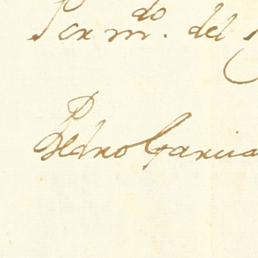 Por m.do del
Pedro Garcia